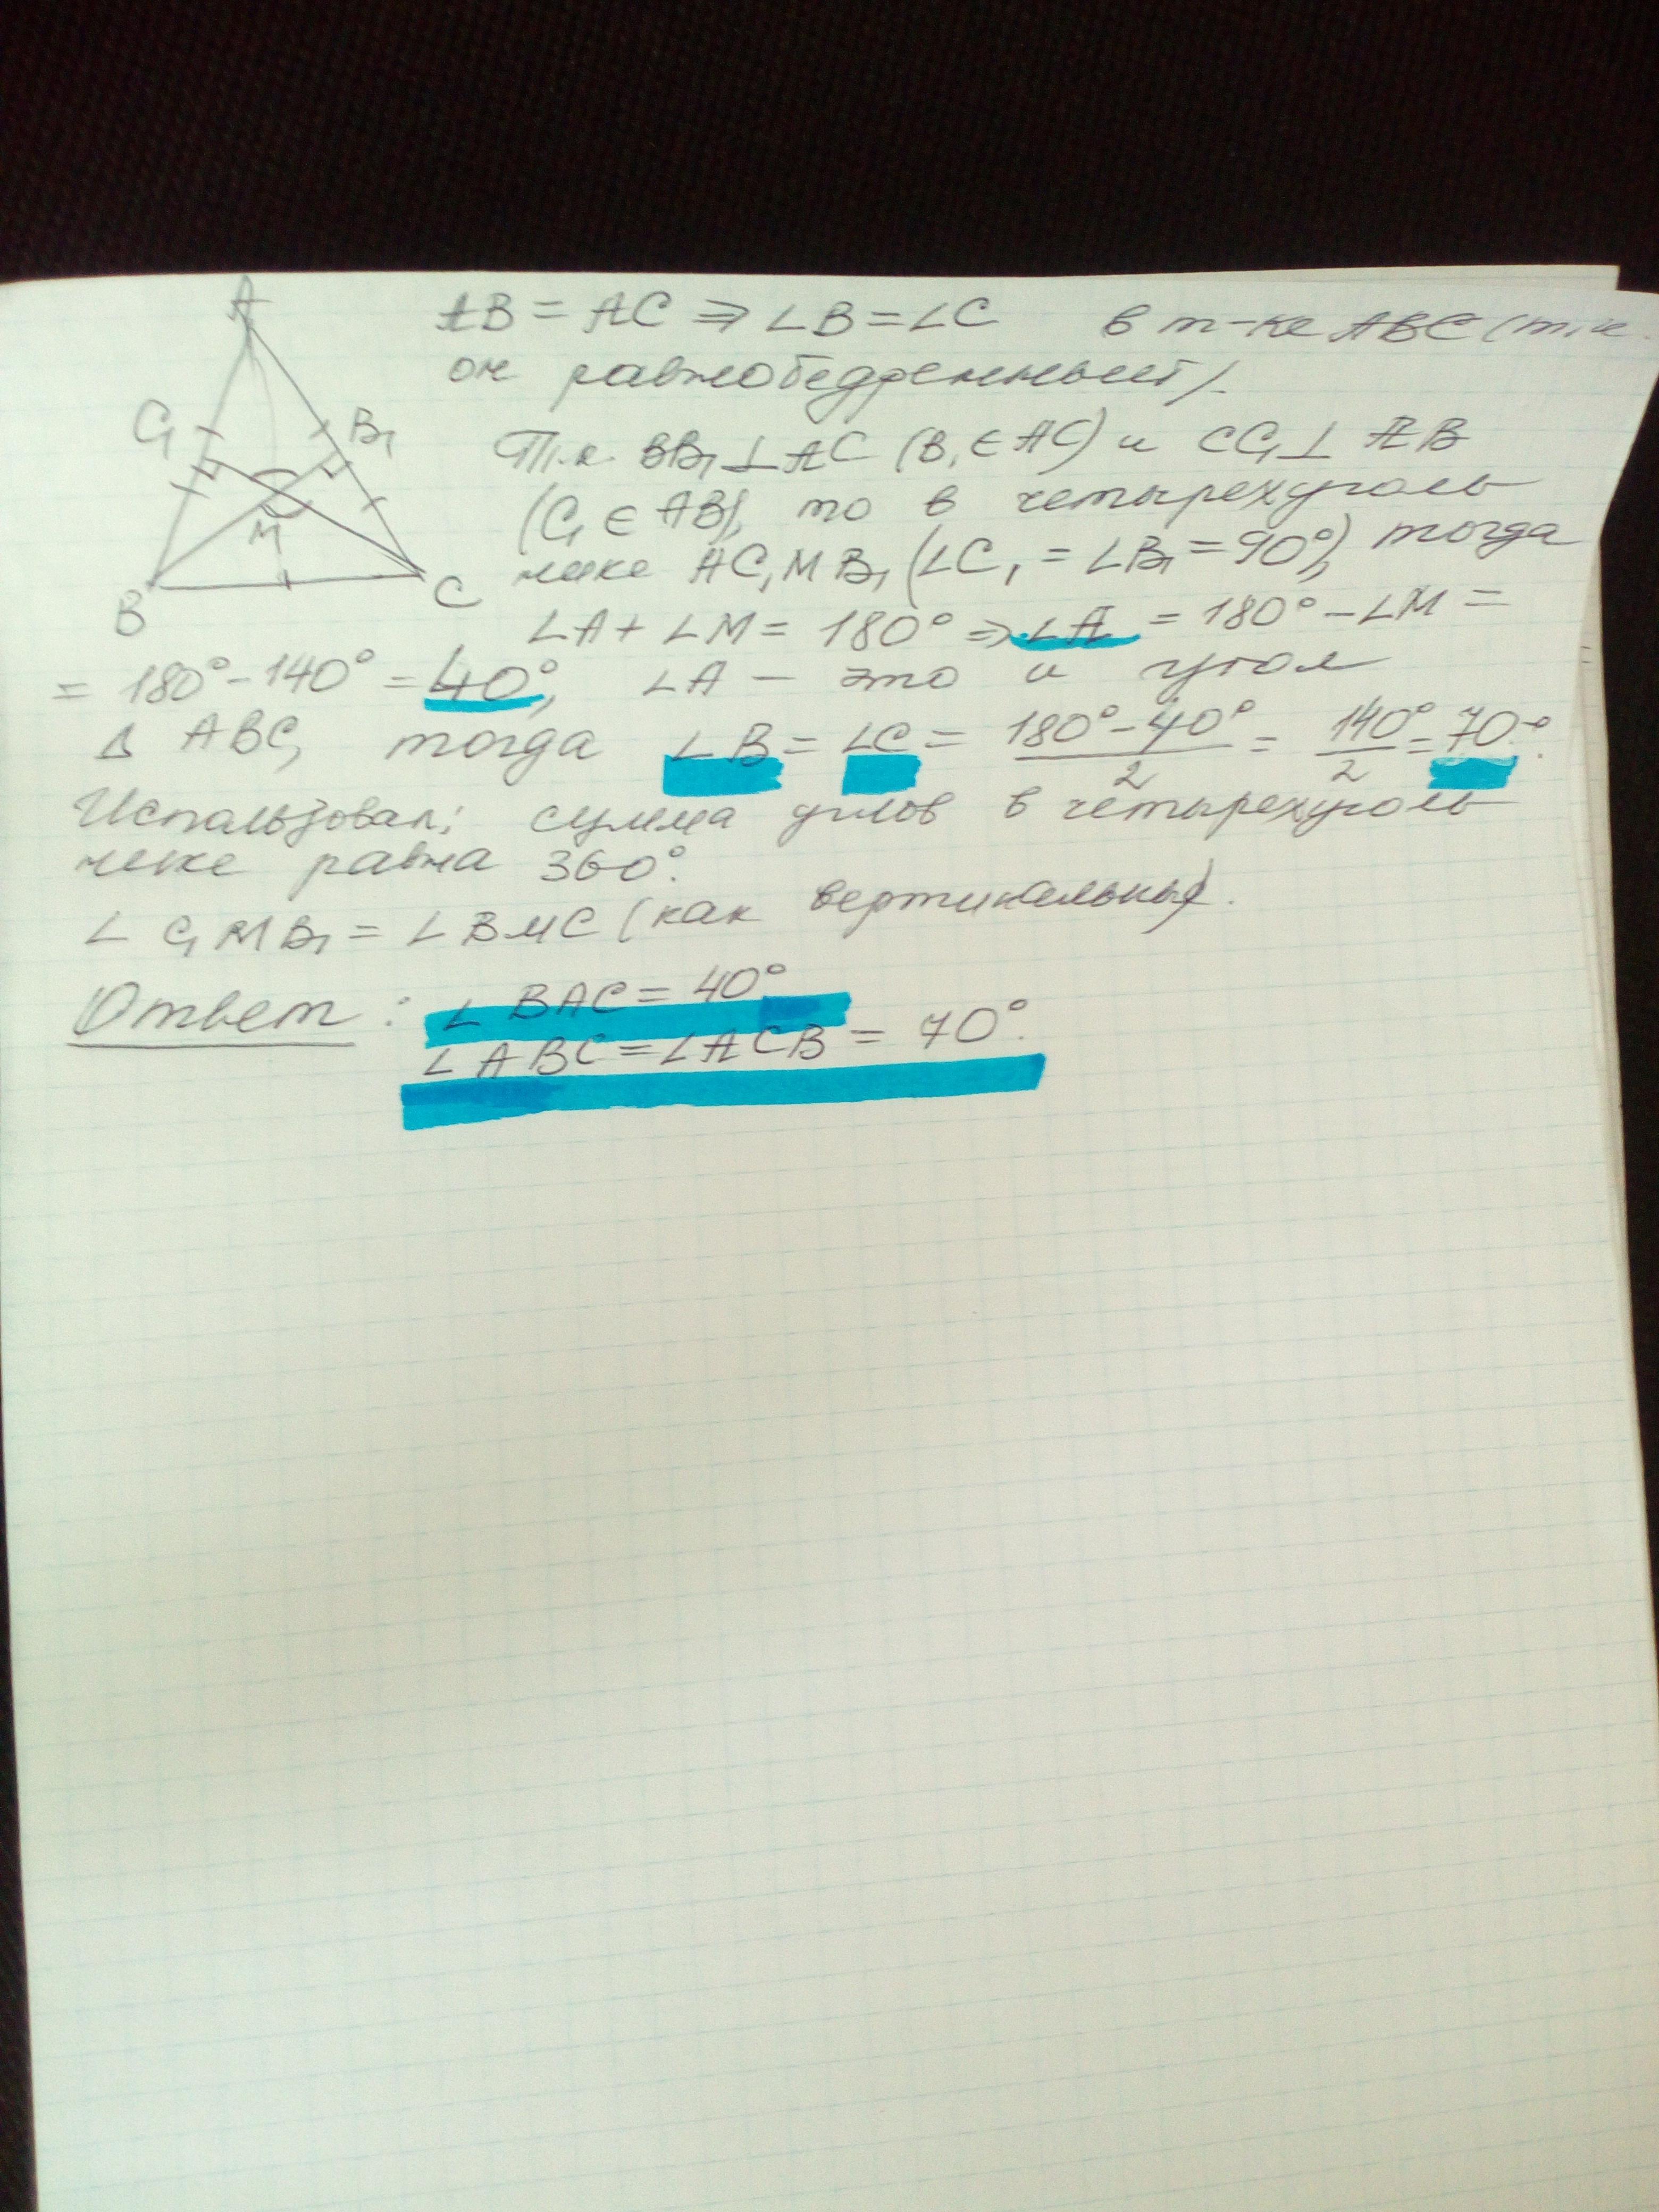 A
C₁
B₁
M
B
C
AB = AC ⇒ ∠B = ∠C в т-ке ABC (т.к.
он равнобедренный).
Т.к. BB₁ ⊥ AC (B₁ ∈ AC) и CC₁ ⊥ AB
(C₁ ∈ AB), то в четырехуголь
нике AC₁MB₁ (∠C₁ = ∠B₁ = 90°), тогда
∠A + ∠M = 180° ⇒ ∠A = 180° - ∠M =
= 180° - 140° = 40°, ∠A — это и угол
Δ ABC, тогда ∠B = ∠C = (180° - 40°)/2 = 140°/2 = 70°.
Использовал: сумма углов в четырехуголь
нике равна 360°.
∠C₁MB₁ = ∠BMC (как вертикальные).
Ответ: ∠BAC = 40°
∠ABC = ∠ACB = 70°.